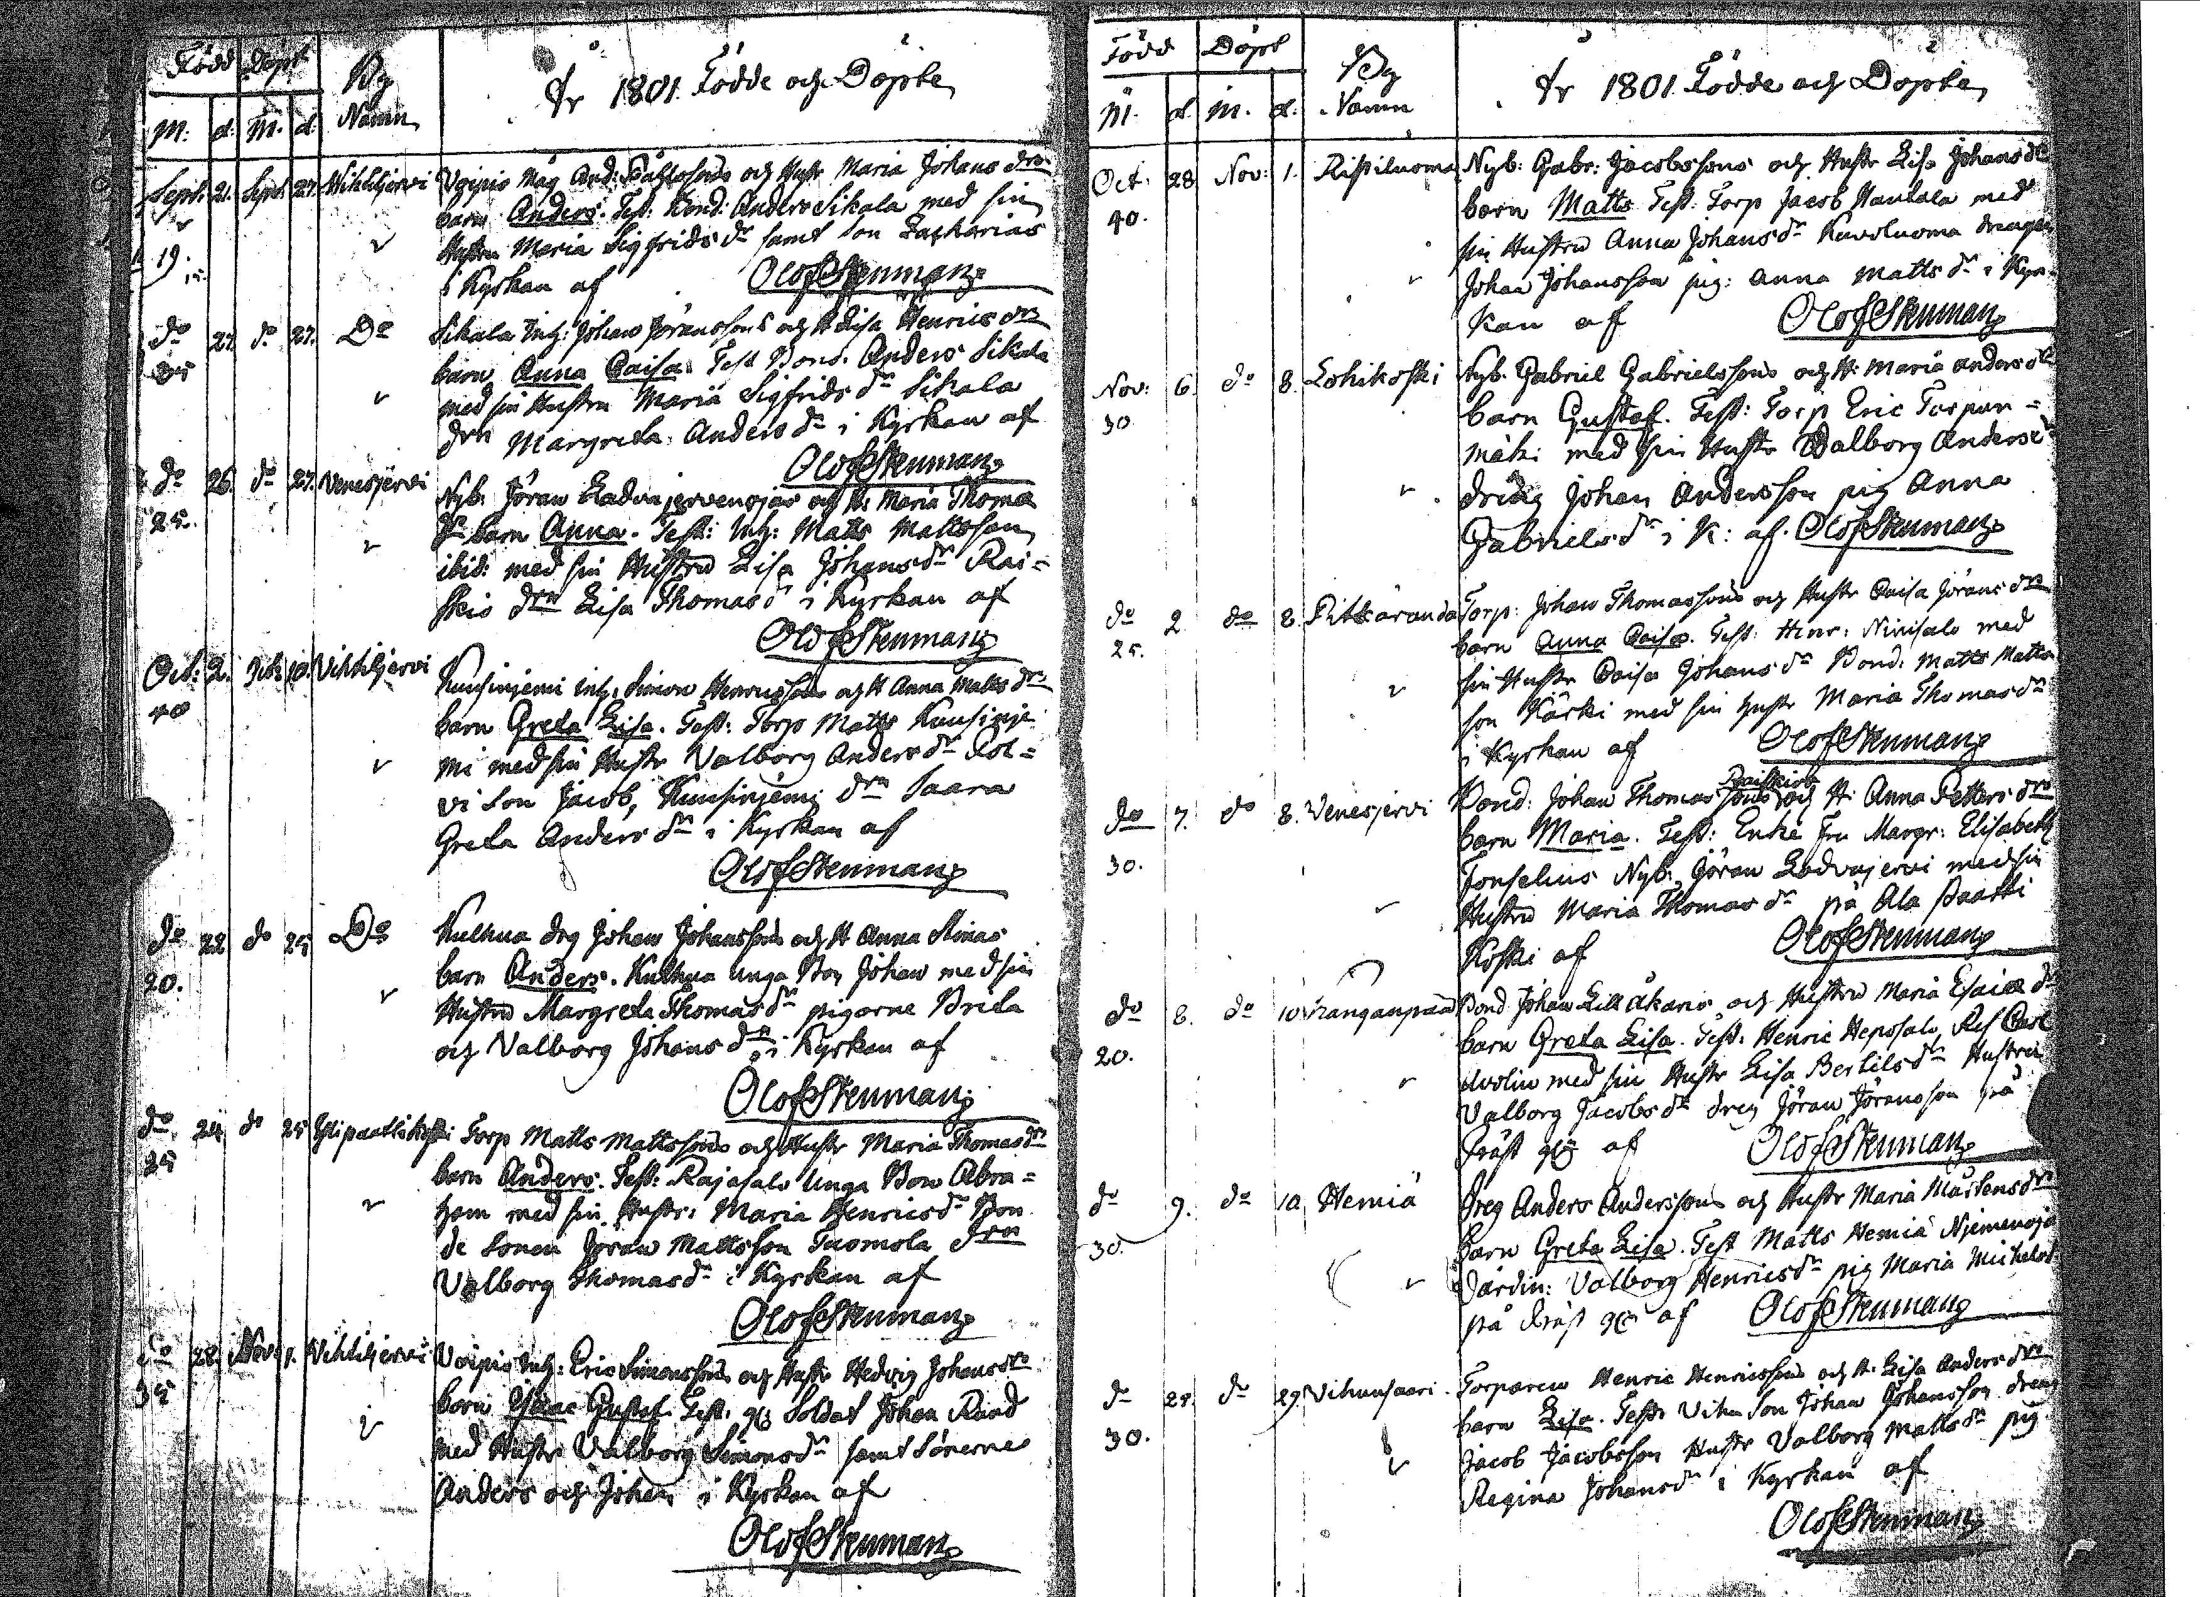 Född Döpt By Namn År 1801. Födde och Döpte
M. d. M. d.
Sept. 21. Sept. 27. Vihtiljervi Voipio Måg And: och Hustr Maria Johans drs
barn Anders. Test: Bond: Anders Sikala med sin
19. Hustru Maria Sigfrids dr samt son Zacharias
i Kyrkan af Olof Stenman
do 27. do 27. Do Sikala Inh: Johan Jöranssons och H Lisa Henrics drs
35 barn Anna Caisa. Test Bond. Anders Sikala
med sin Hustru Maria Sigfrids dr Sikala
drn Margreta Anders dr i Kyrkan af
Olof Stenman
do 26. do 27. Venesjervi Nyb. Jöran och H. Maria Thomæ
25. dr barn Anna. Test: Inh: Matts Mattsson
ibid: med sin Hustru Lisa Johans dr Rai=
skio drn Lisa Thomas dr i Kyrkan af
Olof Stenman
Oct: 2. Octb 10. Vihtiljervi Kuusinjemi Inh. Simon Henricssons och H Anna Matts drs
40 barn Greta Lisa. Test: Torp Matts Kuusinje
mi med sin Hustr Valborg Anders dr Pol=
vi Son Jacob, Kuusinjemi drn Saara
Greta Anders dr i Kyrkan af
Olof Stenman
do 22 do 25 Do Kulhua drg Johan Johanssons och H Anna Stinas
20. barn Anders. Kulhua unga Bon Johan med sin
Hustru Margreta Thomas dr pigorne Brita
och Valborg Johans dr i Kyrkan af
Olof Stenman
do 24 do 25 Ylipaattikoski Torp Matts Mattssons och Hustr Maria Thomas drs
25 barn Anders. Test: Rajasalo Unga Bon Abra=
ham med sin Hustr: Maria Henrics dr Bon
de Sonen Jöran Mattsson Tuomola drn
Valborg Thomas dr i Kyrkan af
Olof Stenman
do 28. Nov: 1. Vihtiljervi Voipio Inh: Eric Simonssons och Hustr Hedvig Johans drs
35 barn Isaac Gustaf. Test. Soldat Johan Rand
med Hustr Valborg Simons dr samt Sönerne
Anders och Johan i Kyrkan af
Olof Stenman
Född Döpt By Namn År 1801. Födde och Döpte
M. d. M. d.
Oct. 28 Nov: 1. Ristiluoma Nyb: Gabr: Jacobssons och Hustr Lisa Johans drs
40. barn Matts Test: Torp Jacob Hautala med
sin Hustru Anna Johans dr Kuvoluoma drengen
Johan Johansson pig: Anna Matts dr i Kyr=
kan af Olof Stenman
Nov: 6. do 8. Lohikoski Nyb. Gabriel Gabrielssons och H: Maria Anders drs
30 barn Gustaf. Test: Torp Eric Torpan=
mäki med sin Hustr Walborg Anders dr
dräng Johan Andersson pig Anna
Gabriels dr i K: af. Olof Stenman
do 2 do 8. Pitkäranda Torp: Johan Thomassons och Hustr Caisa Jörans drs
25. barn Anna Caisa. Test: Henr: Ninisalo med
sin Hustr Caisa Johans dr Bond: Matts Matts
son Kärki med sin Hustr Maria Thomas dr
i Kyrkan af Olof Stenman
Raiskios
do 7. do 8. Venesjervi Bond: Johan Thomassons och H: Anna Petters drs
30. barn Maria. Test: Enke Fru Margr: Elisabeth
Fonselius Nyb. Jöran Ladvajervi med sin
Hustru Maria Thomas dr på Ala Paatti
Koski af Olof Stenman
do 8. do 10 Kanganpää Bond Johan Lill Åkaris och Hustru Maria Esaiæ dr
20. barn Greta Lisa. Test. Henric Heposalo, Ref Carl
med sin Hustr Lisa Bertils dr Hustru
Valborg Jacobs dr dreg Jöran Jöransson på
Präst af Olof Stenman
do 9. do 10 Hemiä dreg Anders Anderssons och Hustr Maria Mårtens drs
30. barn Greta Lisa. Test Matts Hemiä Njemenoja
Värdin: Valborg Henrics dr pig Maria Michels dr
på Präst af Olof Stenman
do 28. do 29. Vihunsaari Torparen Henric Henricssons och H. Lisa Anders drs
30. barn Lisa. Test: Vihu Son Johan Johansson dreng
Jacob Jacobsson Hustr Valborg Matts dr pig
Regina Johans dr i Kyrkan af
Olof Stenman